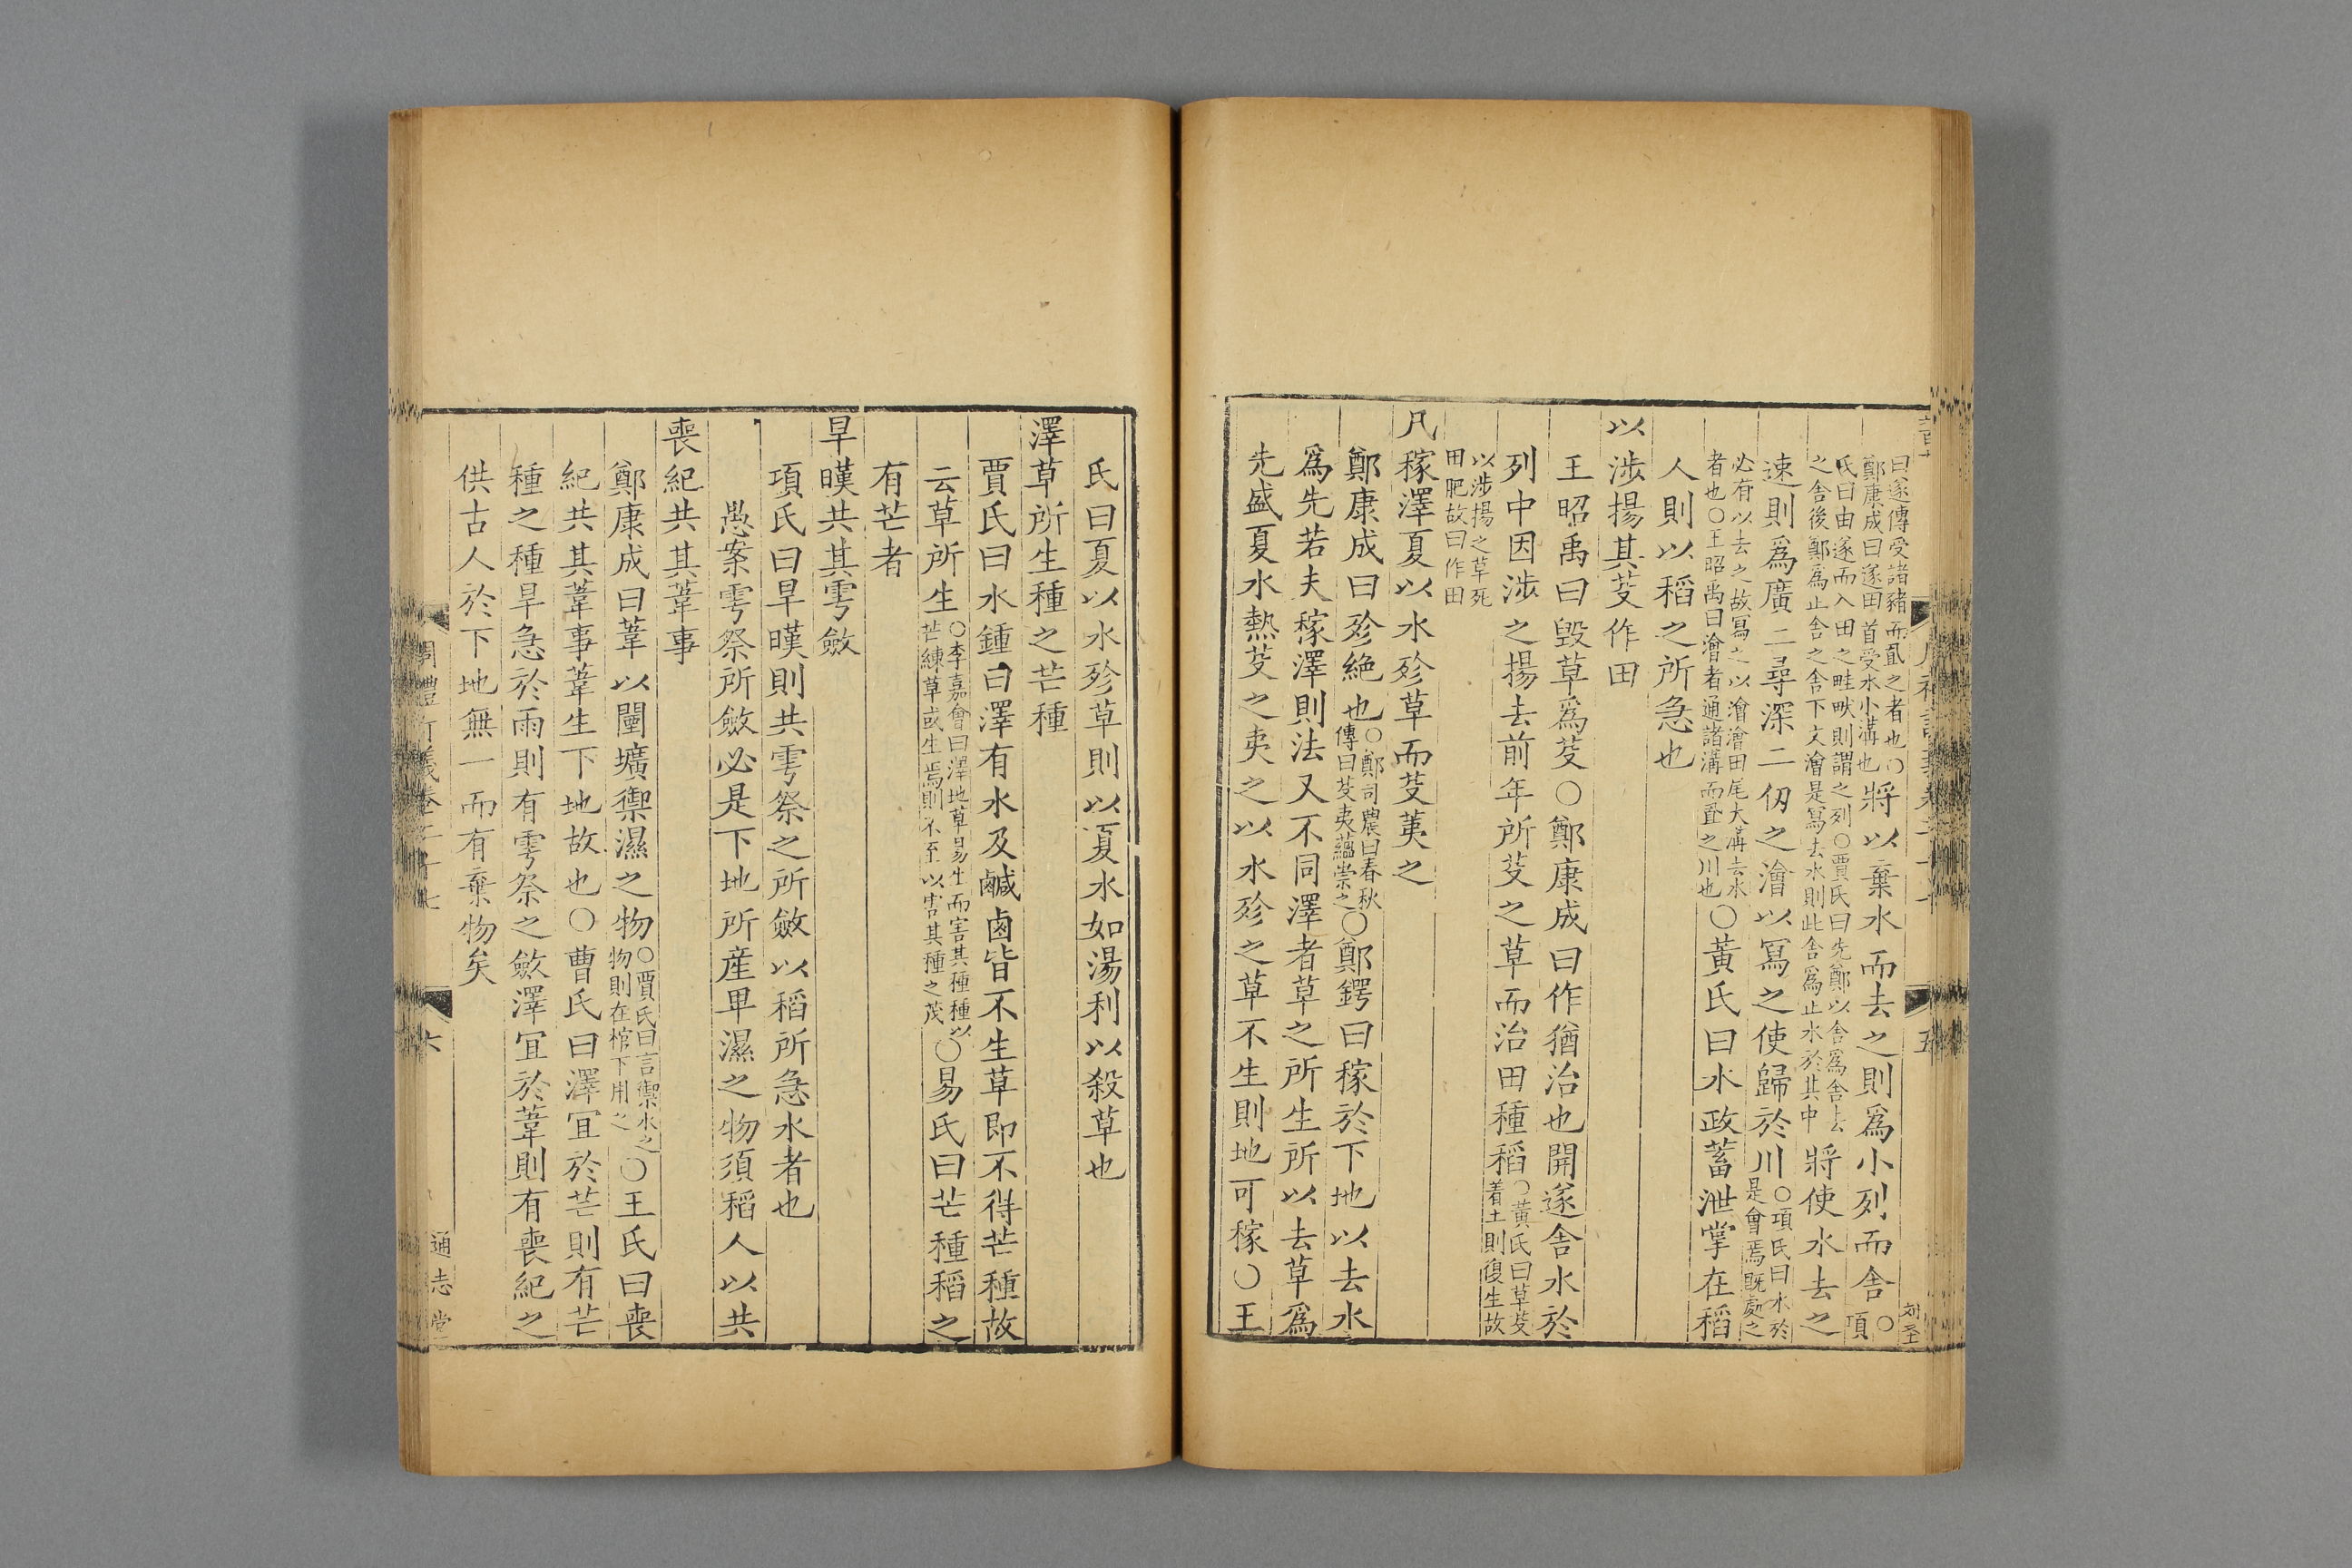 曰遂傳受諸豬而𤰕之者也○
鄭康成曰遂田首受水小溝也
將以棄水而去之則爲小列而舍
○項
氏曰由遂而入田之畦畎則謂之列○賈氏曰先鄭以舍爲舍去
之舍後鄭爲止舍之舍下文澮是寫去水則此舍爲止水於其中
將使水去之
速則爲廣二尋深二仞之澮以寫之使歸於川
○項氏曰水於
是會焉既處之
必有以去之故寫之以澮澮田尾大溝去水
者也○王昭禹曰澮者通諸溝而𤰕之川也
○黃氏曰水政蓄泄掌在稻
人則以稻之所急也
以涉揚其芟作田
王昭禹曰毀草爲芟○鄭康成曰作猶治也開遂舍水於
列中因涉之揚去前年所芟之草而治田種稻
○黃氏曰草芟
着土則復生故
以涉揚之草死
田肥故曰作田
凡稼澤夏以水殄草而芟荑之
鄭康成曰殄絕也
○鄭司農曰春秋
傳曰芟夷蘊崇之
○鄭鍔曰稼於下地以去水
爲先若夫稼澤則法又不同澤者草之所生所以去草爲
先盛夏水熱芟之夷之以水殄之草不生則地可稼○王
五
刘圣
氏曰夏以水殄草則以夏水如湯利以殺草也
澤草所生種之芒種
賈氏曰水鍾曰澤有水及鹹鹵皆不生草即不得芒種故
云草所生
○李嘉會曰澤地草易生而害其種種以
芒練草或生焉則不至以害其種之茂
○易氏曰芒種稻之
有芒者
旱暵共其雩斂
項氏曰旱暵則共雩祭之所斂以稻所急水者也
愚案雩祭所斂必是下地所産卑濕之物須稻人以共
喪紀共其葦事
鄭康成曰葦以闉壙禦濕之物
○賈氏曰言禦水之
物則在棺下用之
○王氏曰喪
紀共其葦事葦生下地故也○曹氏曰澤宜於芒則有芒
種之種旱急於雨則有雩祭之斂澤宜於葦則有喪紀之
供古人於下地無一而有棄物矣
周禮訂義卷二十七
六
通志堂